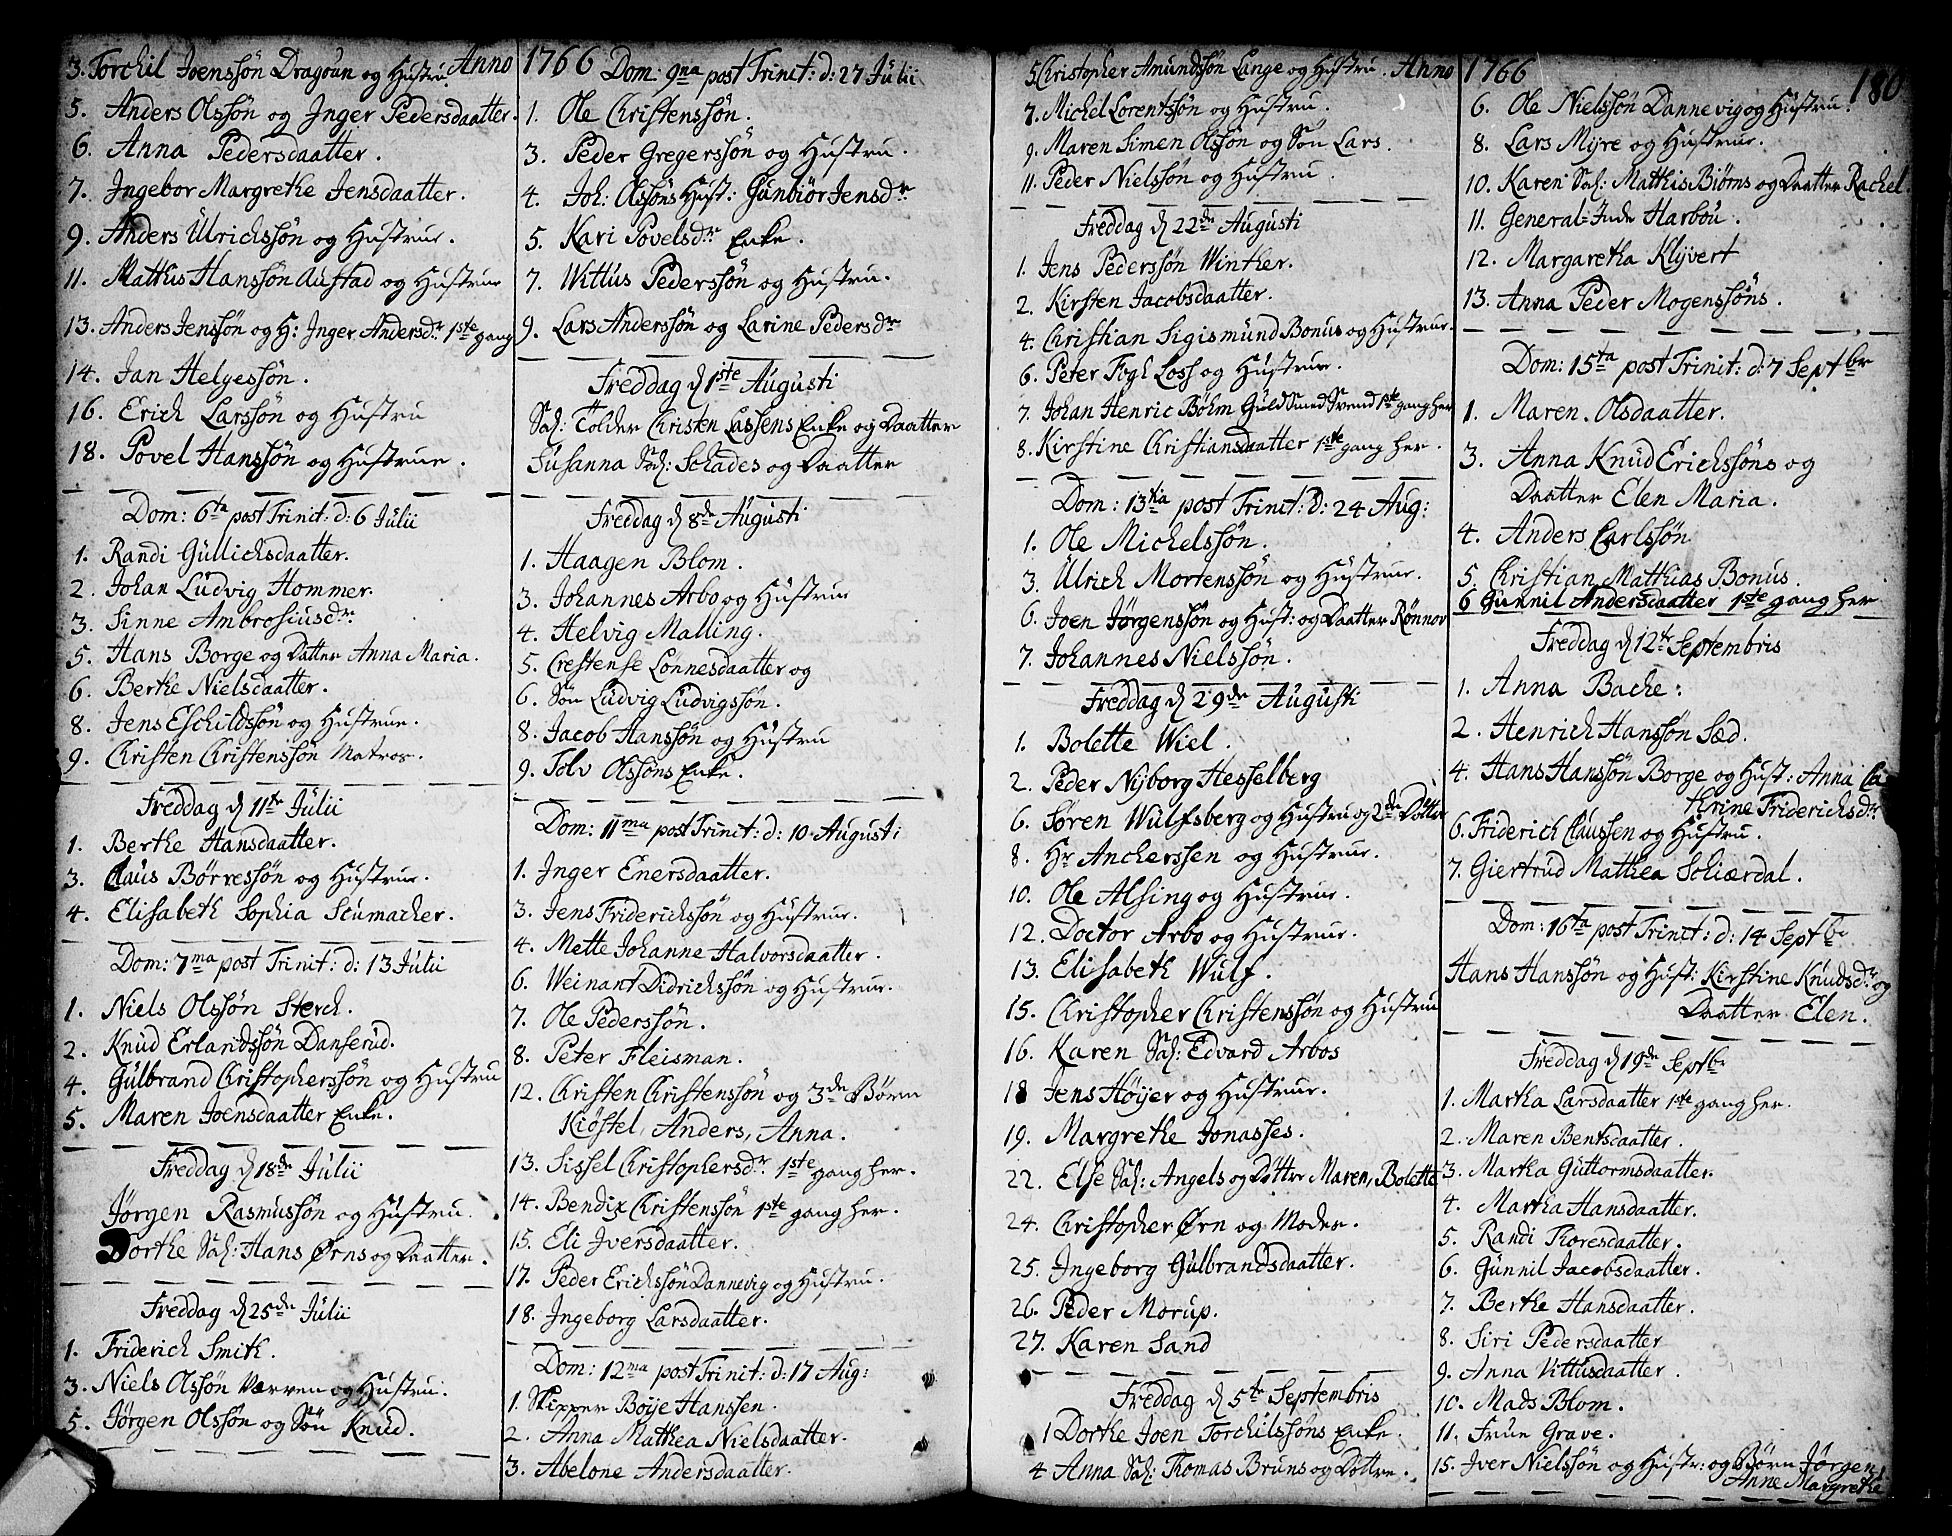 3. Torchil Joenssön Dragoun og Hustru Anno
5. Anders Olssön og Inger Pedersdaatter.
6. Anna Pedersdaatter.
7. Ingebor Margrethe Jensdaatter.
9. Anders Ulrichssön og Hustrue.
11. Mathis Hanssön Austad og Hustrue
13. Anders Jenssön og H: Inger Andersdr. 1ste gang
14. Jan Helgessön.
16. Erich Larssön og Hustru
18. Povel Hanssön og Hustrue.
Dom: 6ta post Trinit: d: 6 Julii
1. Randi Gullichsdaatter.
2. Johan Ludvig Hommer.
3. Sinne Ambrosiusdr.
5. Hans Borge og Datter Anna Maria.
6. Berthe Nielsdaatter.
8. Jens Eschildssön og Hustrue.
9. Christen Christenssön Matros.
Freddag d 11te Julii
1. Berthe Hansdaatter.
3. Claus Börressön og Hustrue.
4. Elisabeth Sophia Scumacher.
Dom: 7ma post Trinit: d: 13 Julii
1. Niels Olssön Sterch.
2. Knud Erlandssön Danserud.
4. Gulbrand Christopherssön og Hustru
5. Maren Joensdaatter Enke.
Freddag d 18de Julii
Jørgen Rasmussön og Hustru.
Dorthe Sal: Hans Ørns og Daatter.
Freddag d 25de Julii
1. Friderich Smith.
3. Niels Olssön Værven og Hustru.
5. Jørgen Olssön og Sön Knud.
1766 Dom: 9na post Trinit: d: 27 Julii
1. Ole Christenssön.
3. Peder Gregerssön og Hustru.
4. Joh: Olssöns Hust: Gunbiör Jensdr
5. Kari Povelsdr Enke.
7. Wittus Pederssön og Hustrue.
9. Lars Anderssön og Larine Pedersdr
Freddag d 1ste Augusti
Sal: Tolder Christen Lassens Enke og Daatter
Susanna Sal: Schades og Daatter
Freddag d 8de Augusti
1. Haagen Blom.
3. Johannes Arbo og Hustrue
4. Helvig Malling.
5. Crestense Lönnesdaatter og
6. Sön Ludvig Ludvigssön.
8. Jacob Hanssön og Hustru
9. Tolv Olssöns Enke.
Dom: 11ma post Trinit: d: 10 Augusti
1. Inger Enersdaatter.
3. Jens Friderichssön og Hustrue.
4. Mette Johanne Halvorsdaatter.
6. Weinant Didrichssön og Hustrue.
7. Ole Pederssön.
8. Peter Fleisman.
12. Christen Christenssön og 3de Børn
Kiöstel, Anders, Anna.
13. Sissel Christophersdr. 1ste gang her.
14. Bendix Christenssön 1ste gang her.
15. Eli Iversdaatter.
17. Peder Erichssön Dannevig og Hustru.
18. Ingeborg Larsdaatter.
Dom: 12ma post Trinit: d: 17 Aug:
1. Skipper Böije Hanssen.
2. Anna Mathea Nielsdaatter.
3. Abelone Andersdaatter.
5. Christopher Amundssön Lange og Hustru. Anno
7. Michel Lorentssön og Hustru.
9. Maren Simen Olssön og Sön Lars.
11. Peder Nielssön og Hustru.
Freddag d 22de Augusti
1. Jens Pederssön Winther.
2. Kirsten Jacobsdaatter.
4. Christian Sigismund Bonus og Hustrue.
6. Peter Fogh Loss og Hustrue.
7. Johan Henric Bøhm Guld Smed Svend 1ste gang her
8. Kirstine Christiansdaatter 1ste gang her.
Dom: 13tia post Trinit: d: 24 Aug:
1. Ole Michelssön.
3. Ulrich Mortenssön og Hustrue.
6. Joen Jørgenssön og Hust: og Daatter Rønnov
7. Johannes Nielssön.
Freddag d 29de Augusti
1. Bolette Wiel.
2. Peder Nyborg Hesselberg
6. Søren Wulfsberg og Hustru og 2de Døttre
8. Hr Ancherssen og Hustrue.
10. Ole Alsing og Hustrue.
12. Doctor Arbo og Hustrue.
13. Elisabeth Wulf.
15. Christopher Christenssön og Hustru
16. Karen Sal: Edvard Arbos
18 Jens Høijer og Hustrue.
19. Margrethe Jonasses.
22. Else Sal: Angels og Døttre Maren, Bolette
24. Christopher Ørn og Moder.
25. Ingeborg Gulbrandsdaatter.
26. Peder Morup.
27. Karen Sand
Freddag d 5te Septembris
1 Dorthe Joen Torchilssöns Enke.
4 Anna Sal: Thomas Bruns og Døttre.
1766 180
6. Ole Nielssön Dannevig og Hustru.
8. Lars Myre og Hustrue.
10. Karen Sal: Mathis Biørns og Daatter Rachel.
11. General-Inde Harbou.
12. Margaretha Klyvert
13. Anna Peder Mogenssöns.
Dom: 15ta post Trinit: d: 7 Septbr
1. Maren Olsdaatter.
3. Anna Knud Erichssöns og
Daatter Elen Maria.
4. Anders Carlssön
5. Christian Mathias Bonus.
6 Gunnil Andersdaatter 1ste gang her
Freddag d 12te Septembris
1. Anna Bache:
2. Henrich Hanssön Sæd.
4. Hans Hanssön Borge og Hust: Anna Ca
thrine Friderichsdr
6. Friderich Claussen og Hustru.
7. Giertrud Mathea Schiærdal.
Dom: 16ta post Trinit: d: 14 Septbr
Hans Hanssön og Hust: Kirstine Knudsdr. og
Daatter Elen.
Freddag d 19de Septbr
1. Martha Larsdaatter 1ste gang her.
2. Maren Bentsdaatter.
3. Martha Guttormsdaatter.
4. Martha Hansdaatter.
5. Randi Thoresdaatter.
6. Gunnil Jacobsdaatter.
7. Berthe Hansdaatter.
8. Siri Pedersdaatter
9. Anna Vittusdaatter.
10. Mads Blom.
11. Frue Grave.
15. Iver Nielssön og Hustr: og Børn Jørgen,
Anne Margrethe